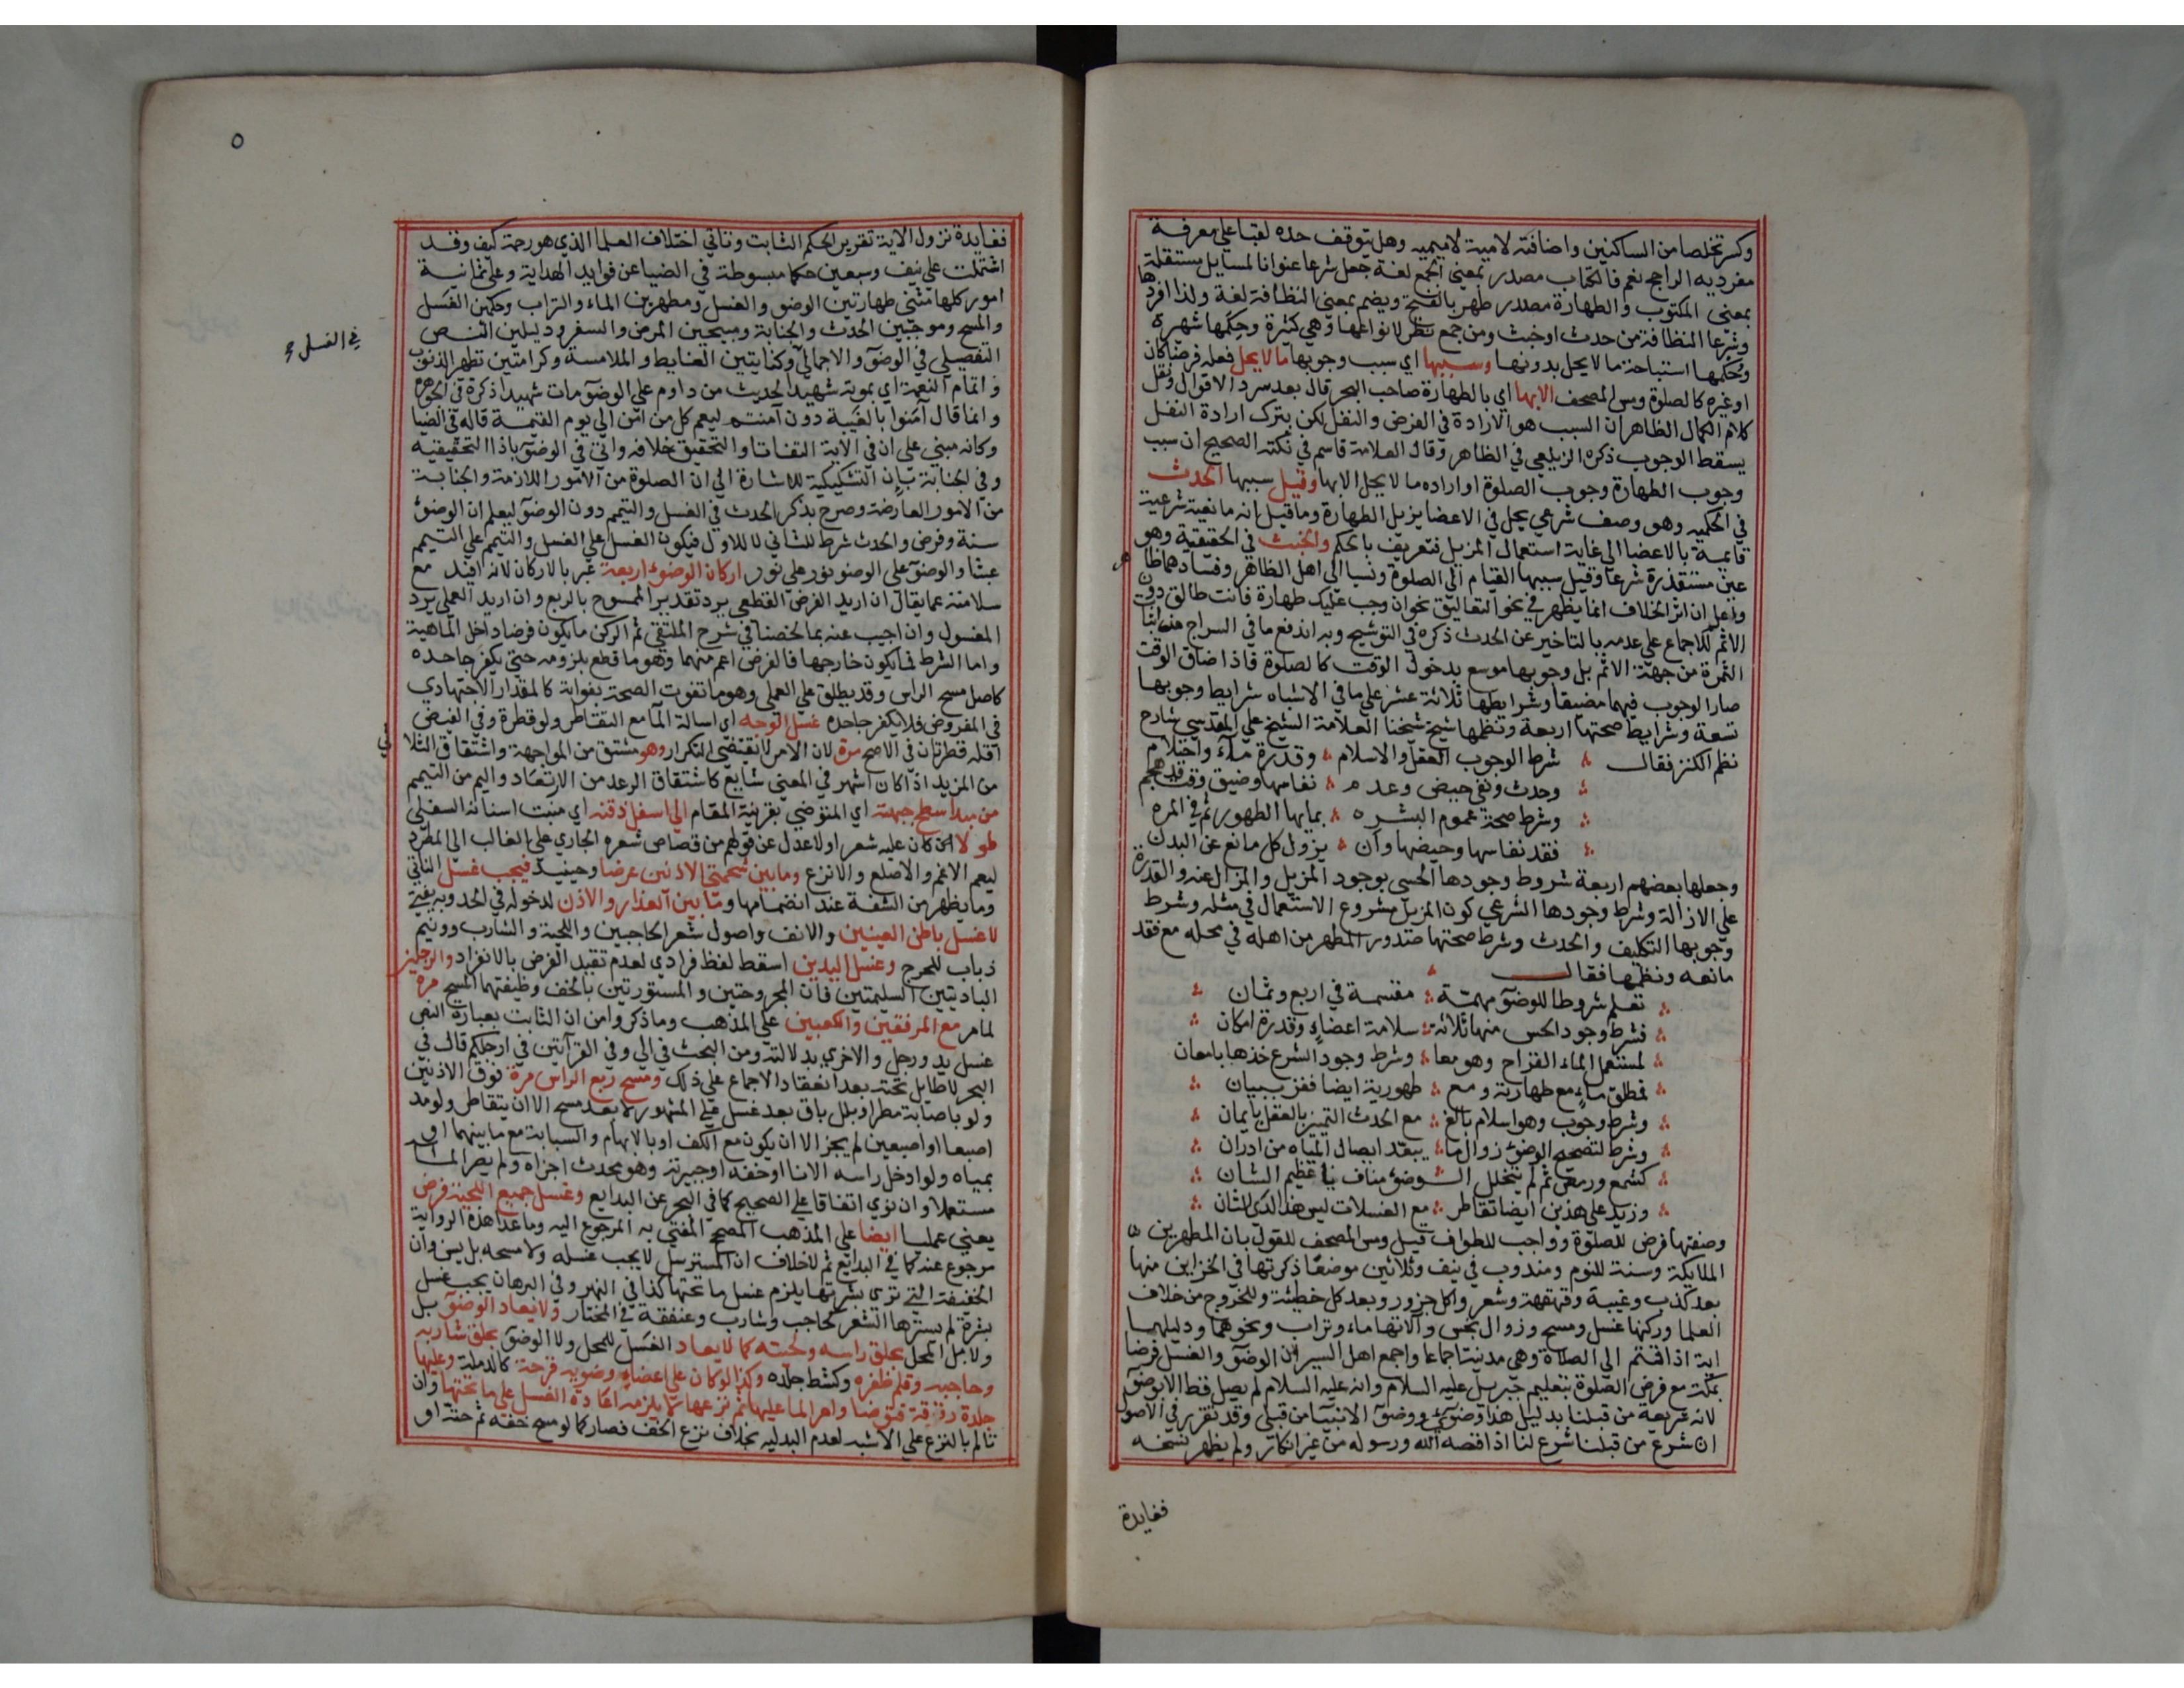 وكسر تخلصا من الساكنين واضافته لامية لا ميمية وهل يتوقف حده لقبا علي معرفة
مفرديه الراجح نعم فالكتاب مصدر بمعني الجمع لغة جعل شرعا عنوانا لمسايل مستقلة
بمعني المكتوب والطهارة مصدر طهر بالفتح ويضم بمعني النظافة لغة ولذا افردها
وشرعا النظافة من حدث او خبث ومن جمع نظر لانواعها وهي كثيرة وحكمها شهيرة
وحكمها استباحة ما لا يحل بدونها وسببها اي سبب وجوبها ما لا يحل فعله فرضا كان
او غيره كالصلوة ومس المصحف الا بها اي بالطهارة صاحب البحر قال بعد سرد الاقوال ونقل
كلام الكمال الظاهر ان السبب هو الارادة في الفرض والنفل لكن بترك ارادة النفل
يسقط الوجوب ذكره الزيلعي في الظاهر وقال العلامة قاسم في نكته الصحيح ان سبب
وجوب الطهارة وجوب الصلوة او اراده ما لا يحل الا بها وقيل سببها الحدث
في الحكمية وهو وصف شرعي يحل في الاعضا يزيل الطهارة وما قيل انه مانعية شرعية
قايمة بالاعضا الي غاية استعمال المزيل فتعريف بالحكم والخبث في الحقيقية وهو
عين مستقذرة شرعا وقيل سببها القيام الي الصلوة ونسبا الي اهل الظاهر وفسادهما ظاهر
واعلم ان اثر الخلاف انما يظهر في نحو التعاليق نحو ان وجب عليك طهارة فانت طالق دون
الاثم للاجماع علي عدمه بالتاخير عن الحدث ذكره في التوشيح وبه اندفع ما في السراج من اثبات
الثمرة من جهة الاثم بل وجوبها موسع بدخول الوقت كالصلوة فاذا ضاق الوقت
صار الوجوب فيهما مضيقا وشرايطها ثلاثة عشر علي ما في الاشباه شرايط وجوبها
تسعة وشرايط صحتها اربعة ونظمها شيخ شيخنا العلامة الشيخ علي المقدسي شارح
نظم الكنز فقال شرط الوجوب العقل والاسلام وقدرة ماء واحتلام
وحدث ونفي حيض وعدم نفاسها وضيق وقت قد هجم
وشرط صحة عموم البشره بمايها الطهور ثم في المره
فقد نفاسها وحيضها وان يزول كل مانع عن البدن
وجعلها بعضهم اربعة شروط وجودها الحسي بوجود المزيل والمزال عنه والقدرة
علي الازالة وشرط وجودها الشرعي كون المزيل مشروع الاستعمال في مثله وشرط
وجوبها التكليف والحدث وشرط صحتها صدور المطهر من اهله في محله مع فقد
مانعه ونظمها فقال
تعلم شروطا للوضوء مهمة مقسمة في اربع وثمان
فشرط وجود الحس منها ثلاثة سلامة اعضاء وقدرة امكان
لمستعمل الماء القراح وهو معا وشرط وجود الشرع خذها بامعان
فمطلق ماء مع طهارته ومع طهورية ايضا ففز ببيان
وشرط وجوب وهو اسلام بالغ مع الحدث التمييز بالعقل يا يمان
وشرط لتصحيح الوضوء زوال ما يبعد ايصال المياه من ادران
كشمع ورمص ثم لم يتخلل الوضوء مناف يا عظيم الشان
وزيد علي هذين ايضا تقاطر مع الغسلات ليس هذا لدي الثان
وصفتها فرض للصلوة وواجب للطواف قيل ومس المصحف للقول بان المطهرين
الملايكة وسنة للنوم ومندوب في نيف وثلاثين موضعا ذكرتها في الخزاين منها
بعد كذب وغيبة وقهقهة وشعر واكل جزور وبعد كل خطيئة وللخروج من خلاف
العلما وركنها غسل ومسح وزوال نجس والاتها ماء وتراب ونحوهما ودليلها
اية اذا قمتم الي الصلاة وهي مدنية اجماعا واجمع اهل السير ان الوضوء والغسل فرضا
بمكة مع فرض الصلوة بتعليم جبريل عليه السلام وانه عليه السلام لم يصل قط الا بوضوء
لانه شريعة من قبلنا بدليل هذا وضوئي ووضوء الانبيا من قبلي وقد تقرر في الاصول
ان شرع من قبلنا شرع لنا اذا قصه الله ورسوله من غير انكار ولم يظهر نسخه
ففايدة
٥
ففايدة نزول الاية تقرير الحكم الثابت وتاتي اختلاف العلما الذي هو رحمة كيف وقد
اشتملت علي نيف وسبعين حكما مبسوطة في الضيا عن فوايد الهداية وعلي ثمانية
امور كلها مثني طهارتين الوضوء والغسل ومطهرين الماء والتراب وحكمين الغسل
والمسح وموجبين الحدث والجنابة ومبيحين المرض والسفر ودليلين النص
في الغسل
التفصيلي في الوضوء والاجمالي وكنايتين الغايط والملامسة وكرامتين تطهر الذنوب
واتمام النعمة اي بموته شهيدا لحديث من داوم علي الوضوء مات شهيدا ذكره في الجوهرة
وانما قال امنوا بالغيبة دون امنتم ليعم كل من امن الي يوم القيمة قاله في الضيا
وكانه مبني علي ان في الاية التفاتا والتحقيق خلافه واتي في الوضوء باذا التحقيقية
وفي الجنابة بان التشكيكية للاشارة الي ان الصلوة من الامور اللازمة والجنابة
من الامور العارضة وصرح بذكر الحدث في الغسل والتيمم دون الوضوء ليعلم ان الوضوء
سنة وفرض والحدث شرط للثاني لا للاول فيكون الغسل علي الغسل والتيمم علي التيمم
عبثا والوضوء علي الوضوء نور علي نور اركان الوضوء اربعة عبر بالاركان لانه افيد مع
سلامته عما يقال ان اريد الفرض القطعي يرد تقدير الممسوح بالربع وان اريد العملي يرد
المغسول وان اجيب عنه بما لخصناه في شرح الملتقي ثم الركن ما يكون فرضا داخل الماهية
واما الشرط فما يكون خارجها فالفرض اعم منهما وهو ما قطع بلزومه حتي يكفر جاحده
كاصل مسح الراس وقد يطلق علي العملي وهو ما تفوت الصحة بفواته كالمقدار الاجتهادي
في المفروض فلا يكفر جاحده غسل الوجه اي اسالة الما مع التقاطر ولو قطرة وفي الفيض
اقله قطرتان في الاصح مرة لان الامر لا يقتضي التكرار وهو مشتق من المواجهة واشتقاق الثلا
ثي
من المزيد اذا كان اشهر في المعني شايع كاشتقاق الرعد من الارتعاد واليم من التيمم
من مبدا سطح جبهته اي المتوضي بقرينة المقام الي اسفل ذقنه اي منبت اسنانه السفلي
طولا كان عليه شعر او لا عدل عن قولهم من قصاص شعره الجاري علي الغالب الي المطرد
ليعم الاغم والاصلع والانزع وما بين شحمتي الاذنين عرضا وحينيذ فيجب غسل الماقي
وما يظهر من الشفة عند انضمامها وما بين العذار والاذن لدخوله في الحد وبه يفتي
لا غسل باطن العينين والانف واصول شعر الحاجبين واللحية والشارب وونيم
ذباب للحرج وغسل اليدين اسقط لفظ فرادي لعدم تقييد الفرض بالانفراد والرجلين
الباديتين السليمتين فان المجروحتين والمستورتين بالخف وظيفتهما المسح مرة
لما مر مع المرفقين والكعبين علي المذهب وما ذكروا من ان الثابت بعبارة النص
غسل يد ورجل والاخري بدلالته ومن البحث في الي وفي القراتين في ارجلكم قال في
البحر لا طايل تحته بعد انعقاد الاجماع علي ذلك ومسح ربع الراس مرة فوق الاذنين
ولو باصابة مطر او بلل باق بعد غسل علي المشهور لا بعد مسح الا ان يتقاطر ولو مد
اصبعا او اصبعين لم يجز الا ان يكون مع الكف او بالابهام والسبابة مع ما بينهما او
بمياه ولو ادخل راسه الانا او خفه او جبيرته وهو محدث اجزاه ولم يصر الما
مستعملا وان نوي اتفاقا علي الصحيح كما في البحر عن البدايع وغسل جميع اللحية فرض
يعني عمليا ايضا علي المذهب الصحيح المفتي به المرجوع اليه وما عدا هذه الرواية
مرجوع عنه كما في البدايع ثم لا خلاف ان المسترسل لا يجب غسله ولا مسحه بل يسن وان
الخفيفة التي تري بشرتها يلزم غسل ما تحتها كذا في النهر وفي البرهان يجب غسل
بشرة لم يسترها الشعر كحاجب وشارب وعنفقة في المختار ولا يعاد الوضوء بل
ولا بل المحل بحلق راسه ولحيته كما لا يعاد الغسل للمحل ولا الوضوء بحلق شاربه
وحاجبه وقلم ظفره وكشط جلده وكذا لو كان علي اعضاء وضويه قرحة كالدملة وعليها
جلدة رقيقة فتوضا وامر الما عليها ثم نزعها لا يلزمه اعادة الغسل علي ما تحتها وان
تالم بالنزع علي الاشبه لعدم البدلية بخلاف نزع الخف فصار كما لو مسح خفه ثم حته او